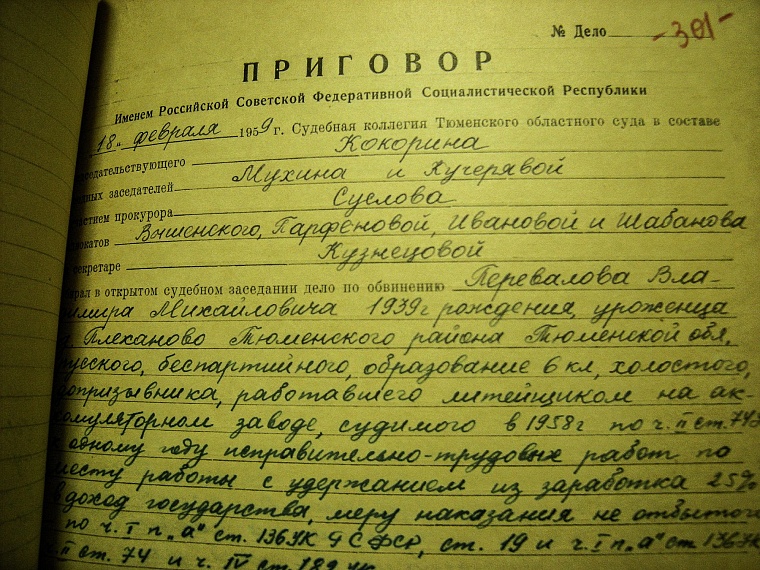 № Дело -301-
ПРИГОВОР
Именем Российской Советской Федеративной Социалистической Республики
18" февраля 1959 г. Судебная коллегия Тюменского областного суда в составе
седательствующего Кокорина
ных заседателей Мухина и Кучерявой
стием прокурора Суслова
вокатов Парфеновой, Ивановой и Шабанова
секретаре Кузнецовой
рал в открытом судебном заседании дело по обвинению Перевалова Вла-
имира Михайловича 1939 г рождения, уроженца
Плеханово Тюменского района Тюменской обл,
русского, беспартийного, образование 6 кл, холостого,
допризывника, работавшего литейщиком на ак-
комуляторном заводе, судимого в 1958 г по ч. II ст. 74 УК
к одному году исправительно-трудовых работ по
месту работы с удержанием из заработка 25%
в доход государства, меру наказания не отбытого
по ч. I п „а" ст. 136 УК РСФСР, ст. 19 и ч. I п „а" ст. 136 УК
II ст. 74 и ч. IV ст. 182 УК